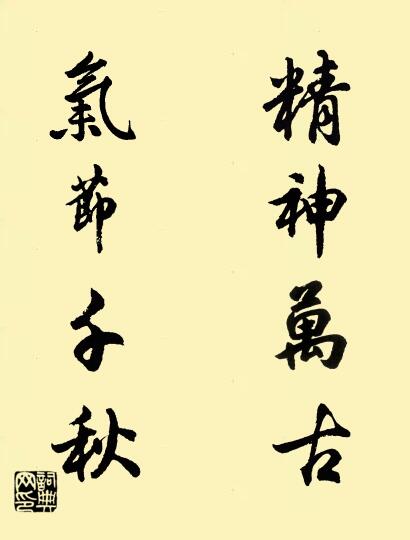 精神萬古
氣節千秋
詞典网